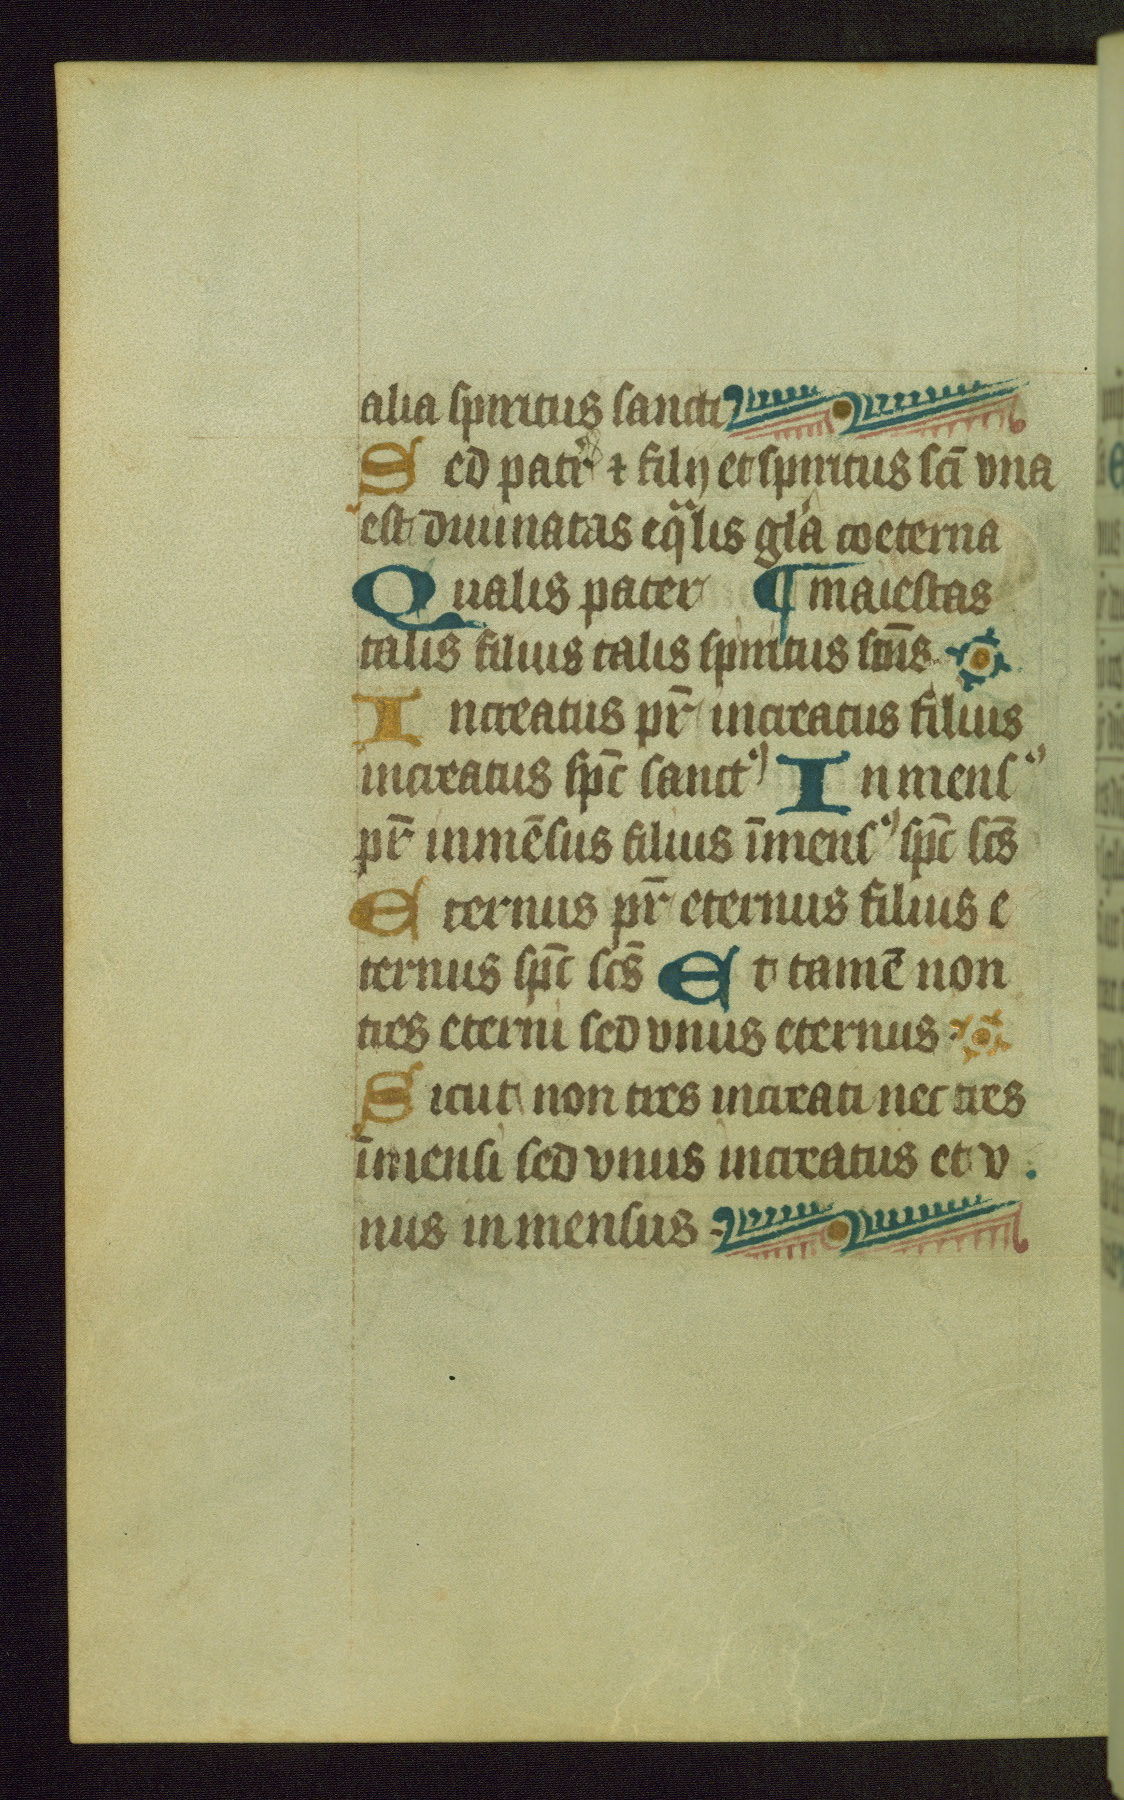 alia spiritus sancti
Sed patr̄ ⁊ filij et spiritus sc̄i vna
est diuinatas eq̄lis gl̄a coeterna
Qualis pater ¶ maiestas
talis filius talis spiritus sctūs
Increatus pr̄ increatus filius
increatus sp̄c sanctꝰ Inmensꝰ
pr̄ inmēsus filius īmensꝰ sp̄c sc̄s
Eternus pr̄ eternus filius e
ternus sp̄c sc̄s Et tamē non
tres eterni sed vnus eternus
Sicut non tres increati nec tres
īmensi sed vnus increatus et v
nus inmensus